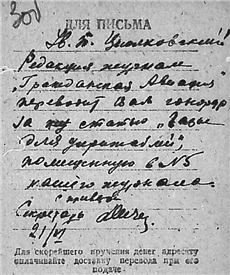 ДЛЯ ПИСЬМА
К. Э. Циолковский!
Редакция журнала
„Гражданская Авиация"
переводит Вам гонорар
за статью „Газы
для дирижаблей"
помещенную в №5
нашего журнала
с приветом
Секретарь
21/VI
Для скорейшего вручения денег адресату
оплачивайте доставку перевода при его
подаче.